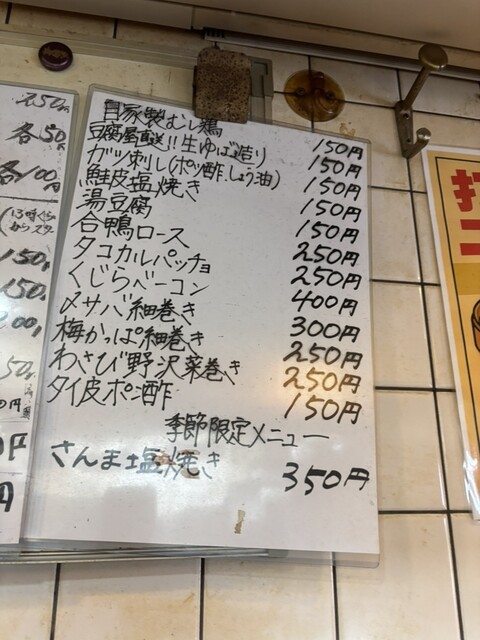 自家製むし鶏 150円
豆腐屋直送!!生ゆば造り 150円
ガツ刺し(ポン酢、しょう油) 150円
鮭皮塩焼き 150円
湯豆腐 150円
合鴨ロース 250円
タコカルパッチョ 250円
くじらベーコン 400円
〆サバ細巻き 300円
梅かっぱ細巻き 250円
わさび野沢菜巻き 250円
タイ皮ポン酢 150円
季節限定メニュー
さんま塩焼き 350円
各50
各100円
150
150